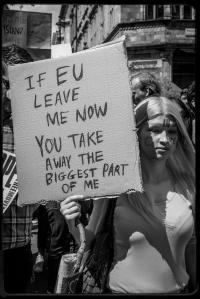 IF EU
LEAVE
ME NOW
YOU TAKE
AWAY THE
BIGGEST PART
OF ME